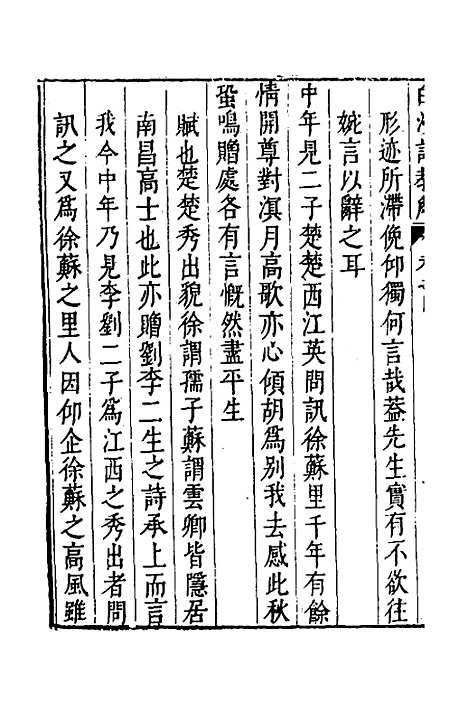 形迹所滯俛仰獨何言哉蓋先生實有不欲往
婉言以辭之耳
中年見二子楚楚西江英問訊徐蘇里千年有餘
情開尊對淇月高歌亦心傾胡爲别我去感此秋
蛩鳴贈處各有言慨然盡平生
賦也楚楚秀出貌徐謂孺子蘇謂雲卿皆隱居
南昌高士也此亦贈劉李二生之詩承上而言
我今中年乃見李劉二子爲江西之秀出者問
訊之又爲徐蘇之里人因仰企徐蘇之高風雖